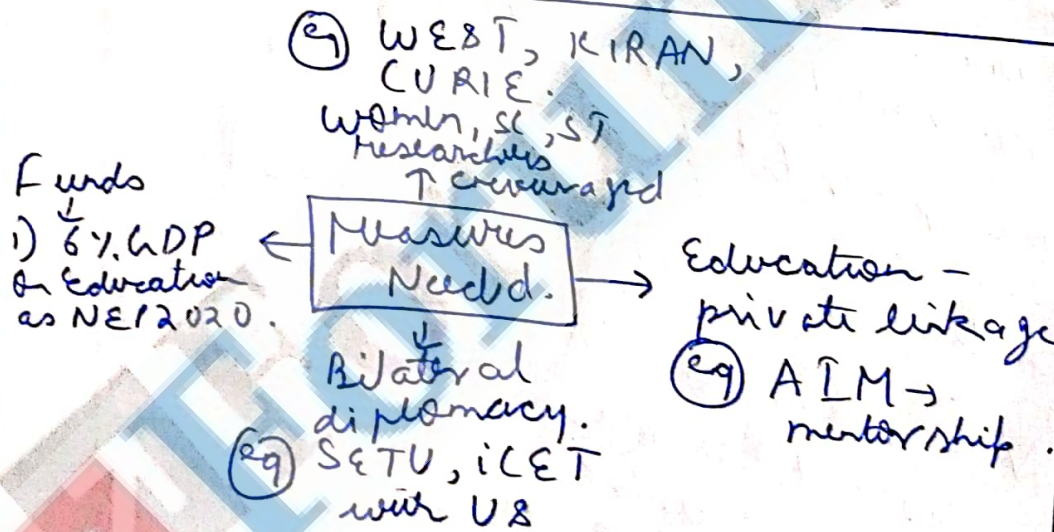 eg WEST, KIRAN,
CURIE.
Women, SC, ST
researchers
↑ encouraged
Funds
↓
1) 6% GDP
on Education
as NEP 2020.
← Measures
Needed. →
Education -
private linkage
eg AIM →
mentorship.
↓
Bilateral
diplomacy.
eg SETU, iCET
with US